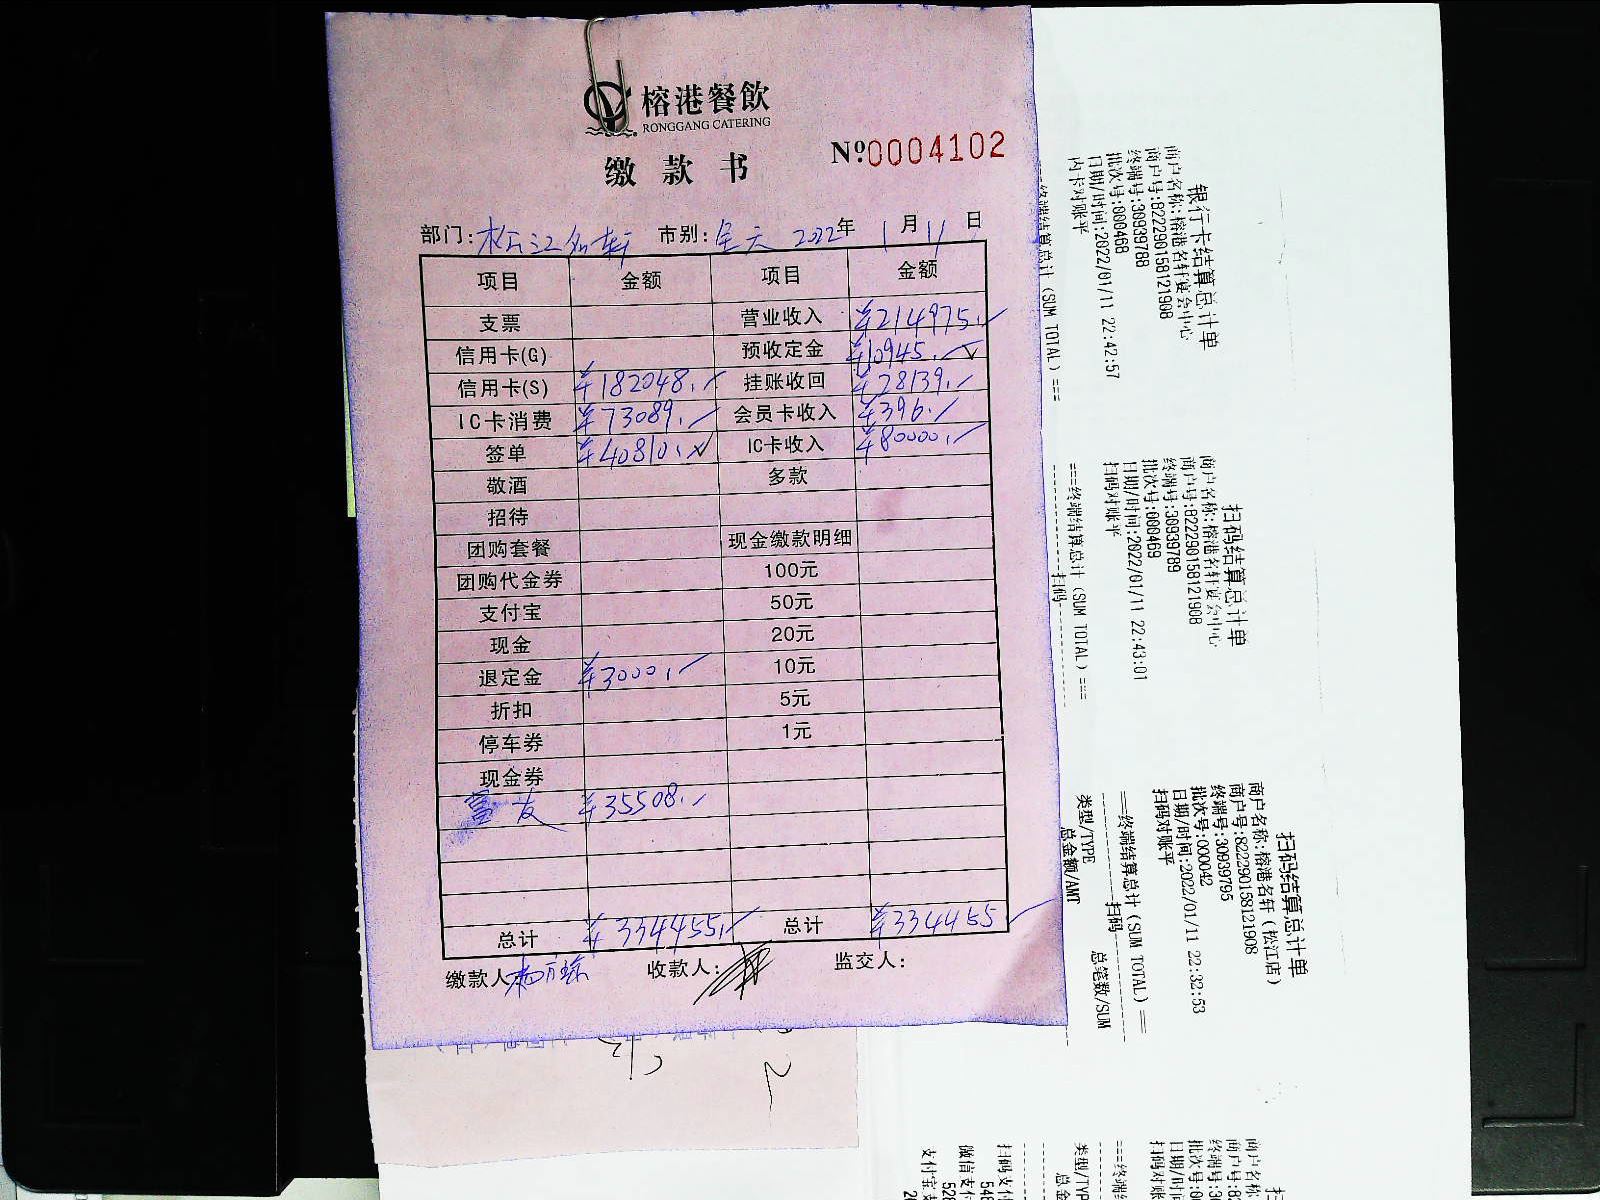 榕港餐飲
RONGGANG CATERING
缴款书
Nº0004102
部门:松江名轩 市别:全天 2022年1月11日
项目 金额 项目 金额
支票 营业收入 ¥214975.
信用卡(G) 预收定金 ¥10945.
信用卡(S) ¥182048. 挂账收回 ¥28139.
IC卡消费 ¥73089. 会员卡收入 ¥396.
签单 ¥40810. IC卡收入 ¥80000.
敬酒 多款
招待
团购套餐 现金缴款明细
团购代金券 100元
支付宝 50元
现金 20元
退定金 ¥3000. 10元
折扣 5元
停车券 1元
现金券
富友 ¥35508.
总计 ¥334455. 总计 ¥334455
缴款人: 收款人: 监交人:
银行卡结算总计单
商户名称:榕港名轩宴会中心
商户号:822290158121908
终端号:30939788
批次号:000468
日期/时间:2022/01/11 22:42:57
内卡对账平
===终端结算总计(SUM TOTAL)===
扫码结算总计单
商户名称:榕港名轩宴会中心
商户号:822290158121908
终端号:30939789
批次号:000469
日期/时间:2022/01/11 22:43:01
扫码对账平
===终端结算总计(SUM TOTAL)===
扫码
扫码结算总计单
商户名称:榕港名轩(松江店)
商户号:822290158121908
终端号:30939795
批次号:000042
日期/时间:2022/01/11 22:32:53
扫码对账平
===终端结算总计(SUM TOTAL)==
扫码
类型/TYPE 总笔数/SUM
总金额/AMT
商户名
商户号:82
终端号:3
批次号:0
日期/时
扫码对账平
===终端
类型/TYP
总金
扫码支付
微信支付
支付宝支